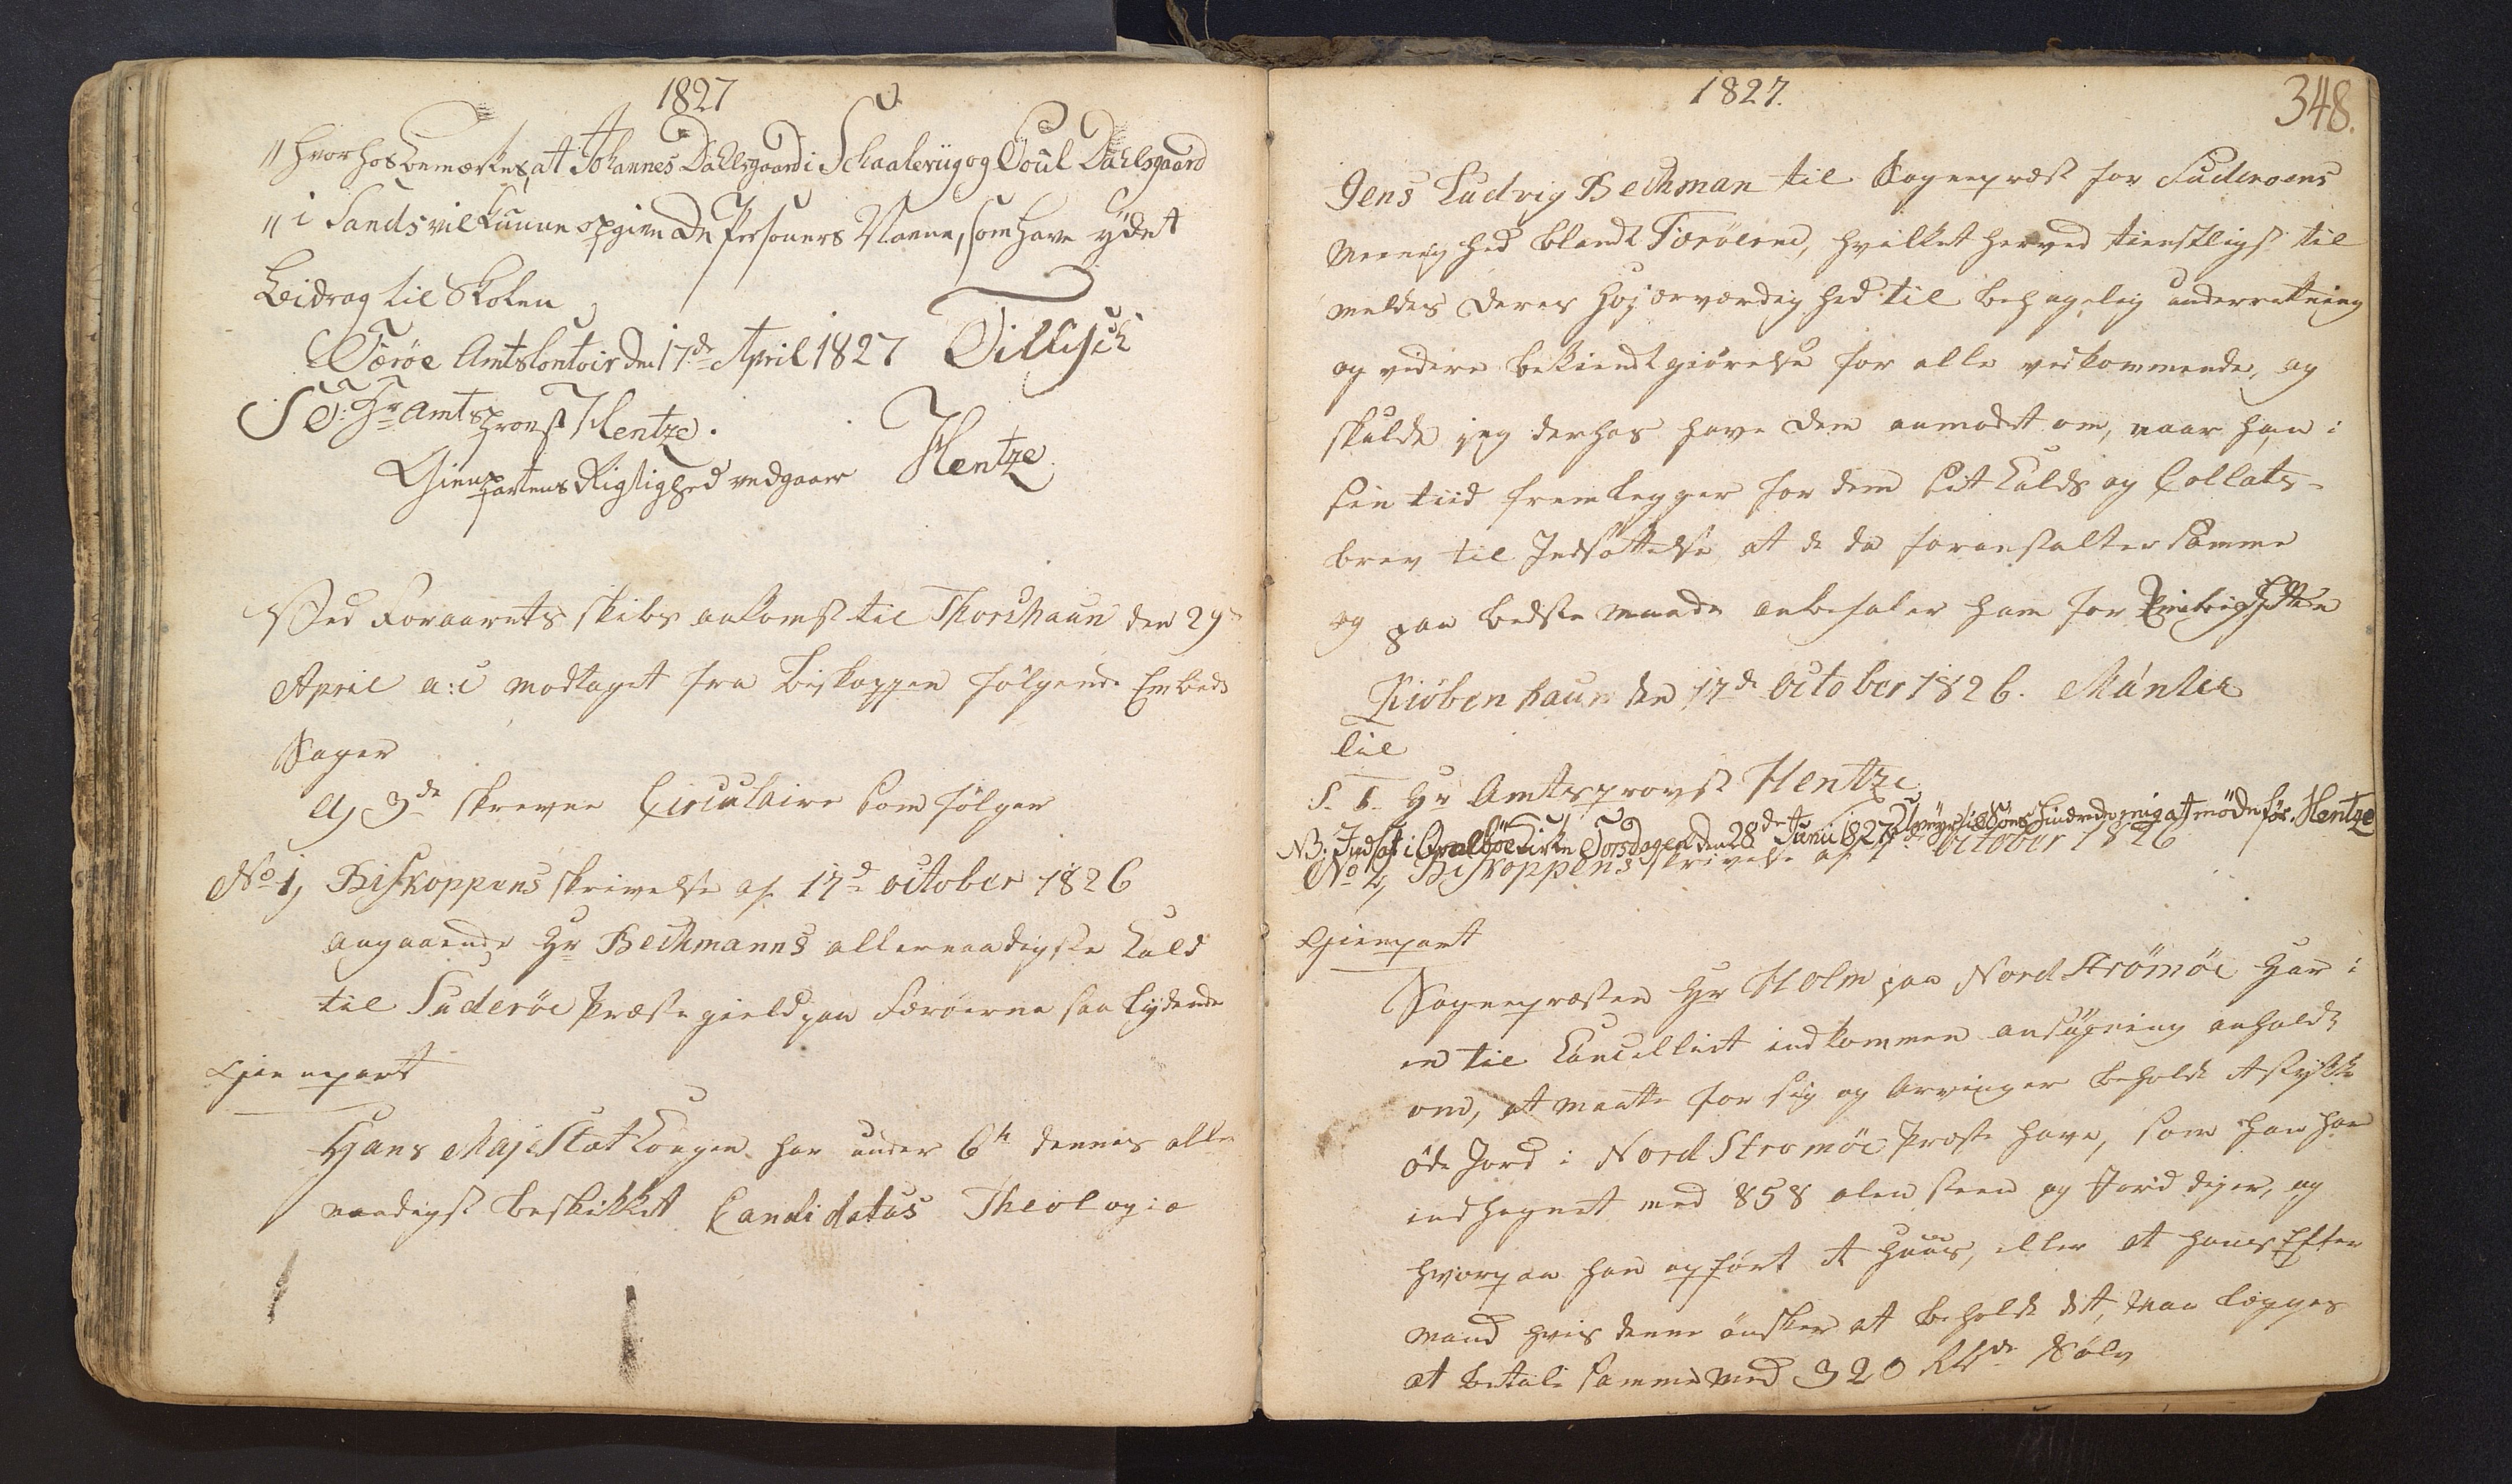 1827
" hvorhos bemærkes, at Johannes Dahlsgaard i Schaalevüg og Poul Dahlsgaard
" i Sands vil kunne opgive de Personers Navne, som have ydet
Bidrag til Skolen
Færøe Amtscontoir den 17de April 1827 Tillisch
S. T. Hr Amtsprovst Hentze.
Gienpartens Rigtighed vedgaaer Hentze
Ved Foraarets skibs ankomst til Thorshaun den 29
April a:c modtaget fra Biskoppen følgende Embeds
Sager
a, 3de skrevne Circulaire som følger
No 1, Biskoppens skrivelse af 17de october 1826
angaaende Hr Bechmanns allernaadigste Kald
til Suderøe Præstegield paa Færøerne saa lydende
Gienpart
Hans Majestæt Kongen har under 6te dennes aller
naadigst beskikket Candidatus Theologiæ
1827.
348.
Jens Ludvig Bechman til Sognepræst for Suderoens
Meenighed blandt Færøerne, hvilket herved tienstligst til
meldes Deres Højærværdighed til behagelig underretning
og videre bekiendtgiørelse for alle vedkommende, og
skulde jeg derhos have Dem anmodet om, naar han i
sin tiid fremlegger for dem sit Kalds og Collats-
brev til Indsættelse at de da foranstalter samme
og paa bedste maade anbefaler ham for Menigheden
Kiöbenhaun den 17de October 1826. Münter
Til
S. T. Hr Amtsprovst Hentze
NB. Indsat i Qvalböe Kirke Torsdagen den 28de Junii 1827, hindrede mig at möde för. Hentze
No 2, Biskoppens skrivelse af 17 October 1826
Gienpart
Sognepræsten Hr Holm paa Nord Strömöe har i
en til Cancelliet indkommen ansøgning anholdt
om, at maatte for sig og Arvinger beholde et stykke
øde Jord i Nord Stromöe Præste have, som han har
indhegnet med 858 alen steen og Jord diger, og
hvorpaa han opført et Huus, eller at hans Efter
mand hvis denne ønsker at beholde det, maa legges
at betale samme med 320 Rbd Sølv